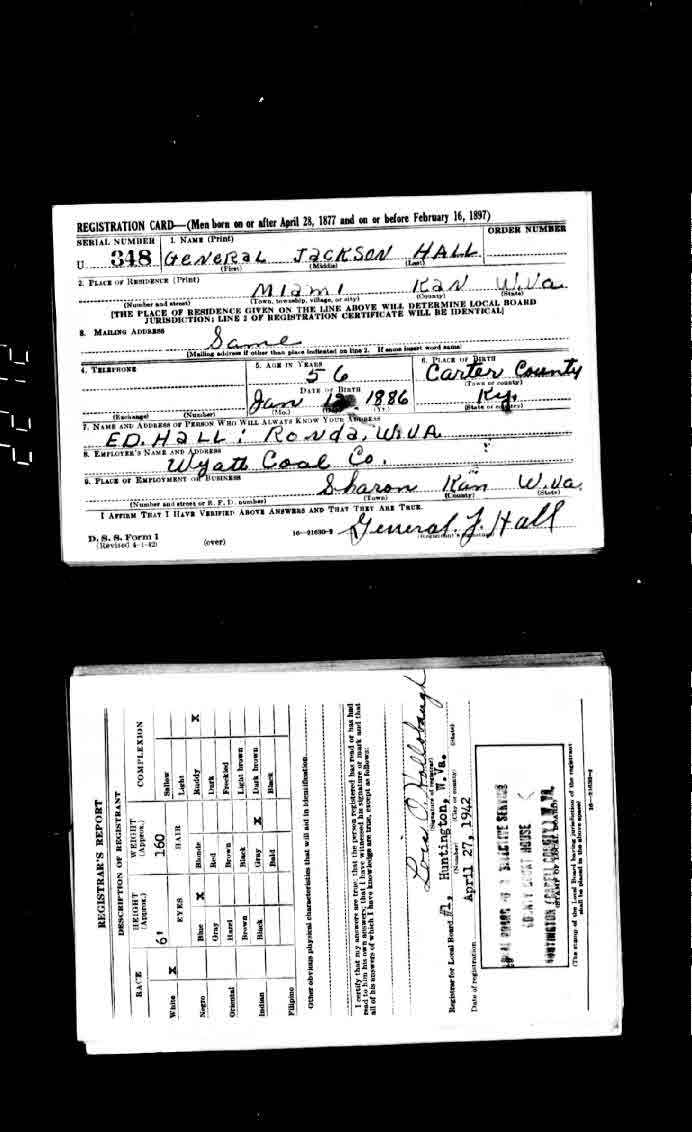 REGISTRATION CARD—(Men born on or after April 28, 1877 and on or before February 16, 1897)
SERIAL NUMBER 1. NAME (Print) ORDER NUMBER
U 348 GENERAL JACKSON HALL
(First) (Middle) (Last)
2. PLACE OF RESIDENCE (Print)
Miami Kan W.Va.
(Number and street) (Town, township, village, or city) (County) (State)
[THE PLACE OF RESIDENCE GIVEN ON THE LINE ABOVE WILL DETERMINE LOCAL BOARD
JURISDICTION; LINE 2 OF REGISTRATION CERTIFICATE WILL BE IDENTICAL]
3. MAILING ADDRESS
Same
[Mailing address if other than place indicated on line 2. If same insert word same]
4. TELEPHONE 5. AGE IN YEARS 6. PLACE OF BIRTH
56 Carter County
(Town or county)
DATE OF BIRTH
Jan 1886 Ky.
(Exchange) (Number) (Mo.) (Yr.) (State or country)
7. NAME AND ADDRESS OF PERSON WHO WILL ALWAYS KNOW YOUR ADDRESS
ED. HALL : Ronda, W.VA.
8. EMPLOYER'S NAME AND ADDRESS
Wyatt Coal Co.
9. PLACE OF EMPLOYMENT OR BUSINESS
Sharon Kan W.Va.
(Number and street or R. F. D. number) (Town) (County) (State)
I AFFIRM THAT I HAVE VERIFIED ABOVE ANSWERS AND THAT THEY ARE TRUE.
General. J. Hall
D. S. S. Form 1
(Revised 4-1-42) (over) 16—21630-2 (Registrant's signature)
REGISTRAR'S REPORT
DESCRIPTION OF REGISTRANT
RACE HEIGHT (Approx.) WEIGHT (Approx.) COMPLEXION
6' 160 Sallow
White X EYES HAIR Light
Negro Blue X Blonde Ruddy X
Gray Red Dark
Oriental Hazel Brown Freckled
Brown Black Light brown
Indian Black Gray X Dark brown
Bald Black
Filipino
Other obvious physical characteristics that will aid in identification
I certify that my answers are true; that the person registered has read or has had
read to him his own answers; that I have witnessed his signature or mark and that
all of his answers of which I have knowledge are true, except as follows:
(Signature of registrar)
Registrar for Local Board #1, Huntington, W.Va.
(Number) (City or county) (State)
Date of registration April 27, 1942
HUNTINGTON
(STAMP OF LOCAL BOARD)
(The stamp of the Local Board having jurisdiction of the registrant
shall be placed in the above space)
16—21630-2